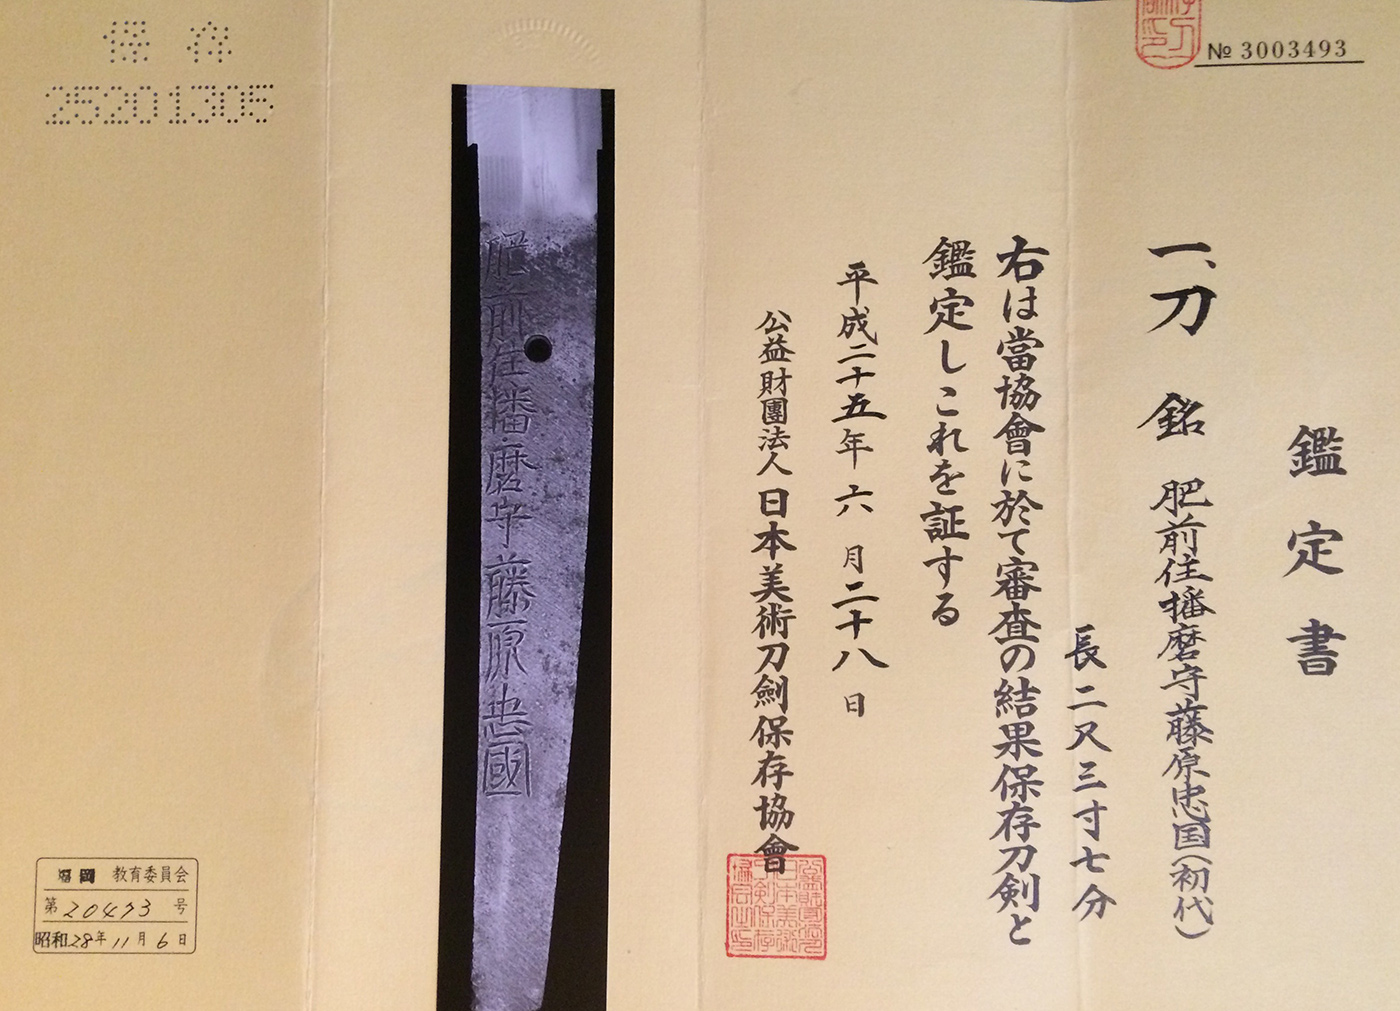 № 3003493
鑑定書
一、刀 銘 肥前住播磨守藤原忠国(初代)
長二尺三寸七分
右は當協會に於て審査の結果保存刀剣と
鑑定しこれを証する
平成二十五年六月二十八日
公益財團法人日本美術刀劍保存協會
肥前住播磨守藤原忠國
保存
25201305
福岡 教育委員会
第20473号
昭和28年11月6日